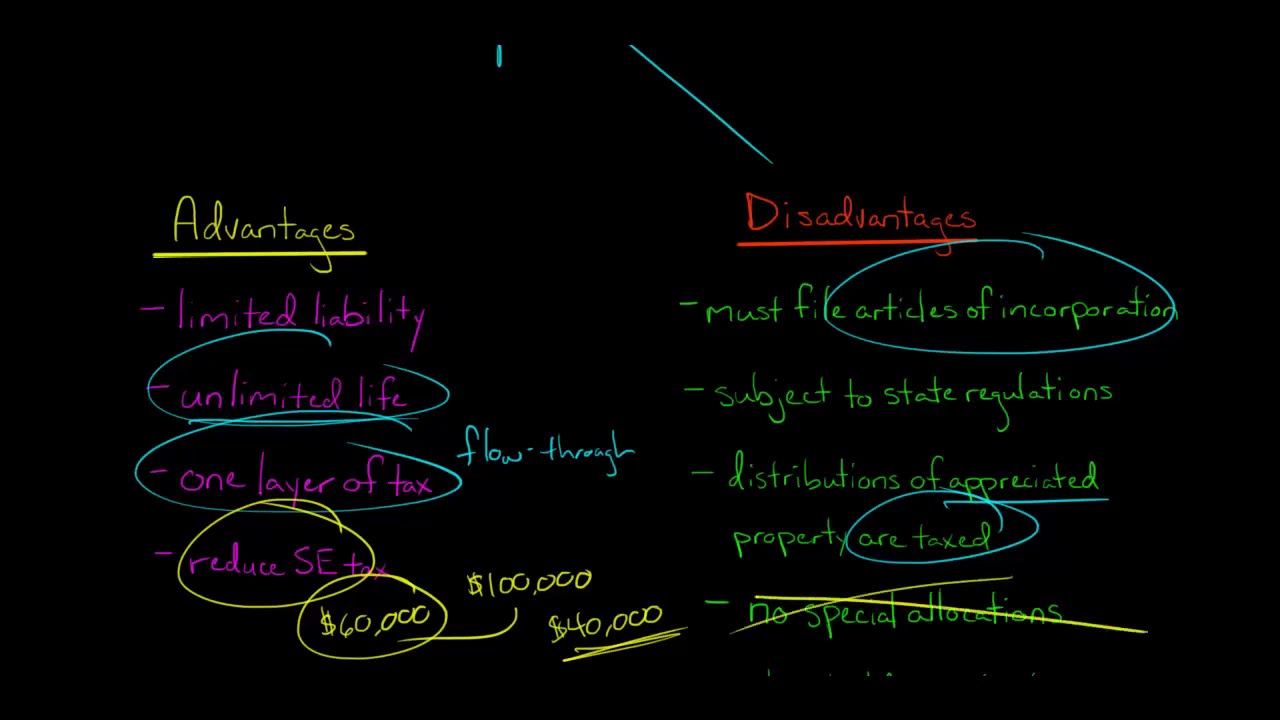 Advantages
- limited liability
- unlimited life
- one layer of tax
flow-through
- reduce SE tax
$100,000
$60,000
$40,000
Disadvantages
- must file articles of incorporation
- subject to state regulations
- distributions of appreciated
property are taxed
- no special allocations